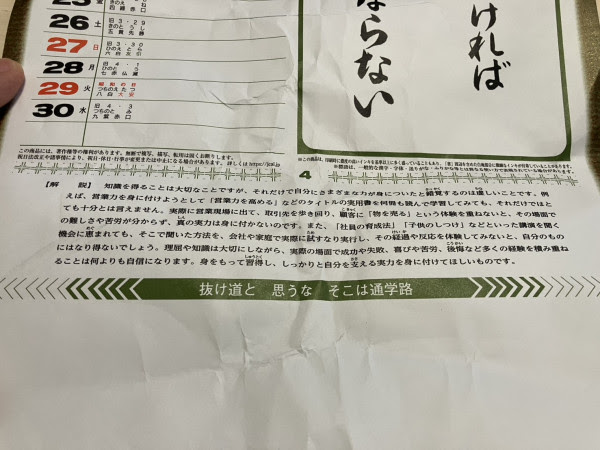 ければ
ならない
26 土 旧3・29 きのとうし 五黄先勝
27 日 旧3・30 ひのえとら 六白友引
28 月 旧4・1 ひのとう 七赤仏滅
29 火 昭和の日 つちのえたつ 八白大安
30 水 旧4・3 つちのとみ 九紫赤口
この商品には、著作権等の権利があります。無断で複写、描写、転用は固くお断りします。
祝日法改正や諸事情により、祝日・休日・行事が変更または中止になる場合があります。
4
【解 説】 知識を得ることは大切なことですが、それだけで自分にさまざまな力が身についたと錯覚するのは難しいことです。例
えば、営業力を身に付けようとして「営業力を高める」などのタイトルの実用書を何冊も読んで学習してみても、それだけではと
ても十分とは言えません。実際に営業現場に出て、取引先を歩き回り、顧客に「物を売る」という体験を重ねないと、その場面で
の難しさや苦労が分からず、真の実力は身に付かないのです。また、「社員の育成法」「子供のしつけ」などといった講演を聞く
機会に恵まれても、そこで聞いた方法を、会社や家庭で実際に試すなり実行し、その経過や反応を体験してみないと、自分のもの
にはなり得ないでしょう。理屈や知識は大切にしながら、実際の場面で成功や失敗、喜びや苦労、後悔など多くの経験を積み重ね
ることは何よりも自信になります。身をもって習得し、しっかりと自分を支える実力を身に付けてほしいものです。
抜け道と 思うな そこは通学路